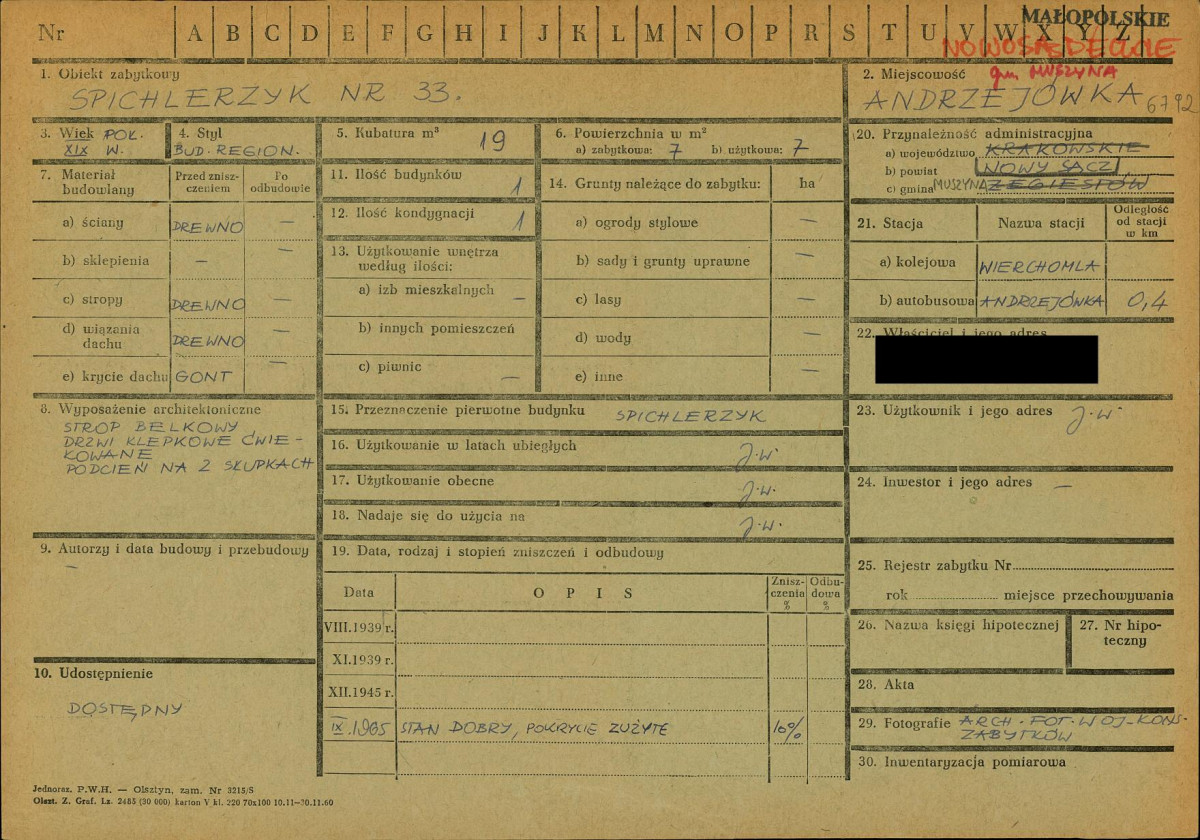 Nr A B C D E F G H I J K L M N O P R S T U V W X Y Z
MAŁOPOLSKIE
NOWOSĄDECKIE
gm MUSZYNA
1. Obiekt zabytkowy
SPICHLERZYK NR 33.
2. Miejscowość
ANDRZEJÓWKA 6792
3. Wiek POŁ.
XIX W.
4. Styl
BUD. REGION.
5. Kubatura m³
19
6. Powierzchnia w m²
a) zabytkowa: 7 b) użytkowa: 7
7. Materiał budowlany
Przed zniszczeniem
Po odbudowie
a) ściany DREWNO —
b) sklepienia — —
c) stropy DREWNO —
d) wiązania dachu DREWNO —
e) krycie dachu GONT —
8. Wyposażenie architektoniczne
STROP BELKOWY
DRZWI KLEPKOWE ĆWIE-
KOWANE
PODCIEŃ NA 2 SŁUPKACH
9. Autorzy i data budowy i przebudowy
—
10. Udostępnienie
DOSTĘPNY
11. Ilość budynków 1
12. Ilość kondygnacji 1
13. Użytkowanie wnętrza
według ilości:
a) izb mieszkalnych —
b) innych pomieszczeń
c) piwnic —
14. Grunty należące do zabytku: ha
a) ogrody stylowe —
b) sady i grunty uprawne —
c) lasy —
d) wody —
e) inne —
15. Przeznaczenie pierwotne budynku SPICHLERZYK
16. Użytkowanie w latach ubiegłych j.w.
17. Użytkowanie obecne j.w.
18. Nadaje się do użycia na j.w.
19. Data, rodzaj i stopień zniszczeń i odbudowy
Data OPIS Zniszczenia % Odbudowa %
VIII.1939 r.
XI.1939 r.
XII.1945 r.
IX.1965 STAN DOBRY, POKRYCIE ZUŻYTE 10%
20. Przynależność administracyjna
a) województwo KRAKOWSKIE
b) powiat NOWY SĄCZ
c) gmina MUSZYNA ŻEGIESTÓW
21. Stacja Nazwa stacji Odległość od stacji w km
a) kolejowa WIERCHOMLA
b) autobusowa ANDRZEJÓWKA 0,4
22. Właściciel i jego adres
23. Użytkownik i jego adres j.w.
24. Inwestor i jego adres —
25. Rejestr zabytku Nr
rok miejsce przechowywania
26. Nazwa księgi hipotecznej
27. Nr hipo-
teczny
28. Akta
29. Fotografie ARCH. FOT. WOJ. KONS.
ZABYTKÓW
30. Inwentaryzacja pomiarowa
Jednoraz. P.W.H. — Olsztyn, zam. Nr 3215/S
Olszt. Z. Graf. Lz. 2485 (30 000) karton V kl. 220 70x100 10.11—30.11.60